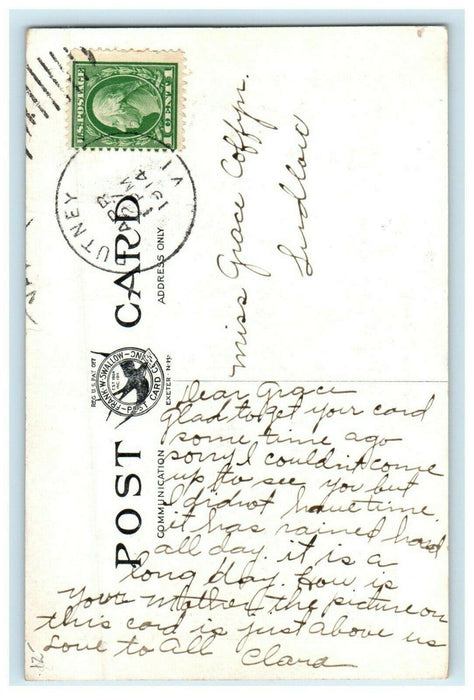 U.S. POSTAGE
1 CENT 1
UTNEY
APR
PM
1914
VT
POST CARD
COMMUNICATION
ADDRESS ONLY
REG. U.S. PAT. OFF.
FRANK·W·SWALLOW
POST CARD CO· INC·
EXETER·N·H·
Miss Grace Coffyn.
Ludlow
Dear Grace
Glad to get your card
some time ago
sorry I couldnt come
up to see you but
I did not have time.
it has rained hard
all day. it is a
long day. How is
your mother the picture on
this card is just above us
Love to All Clara